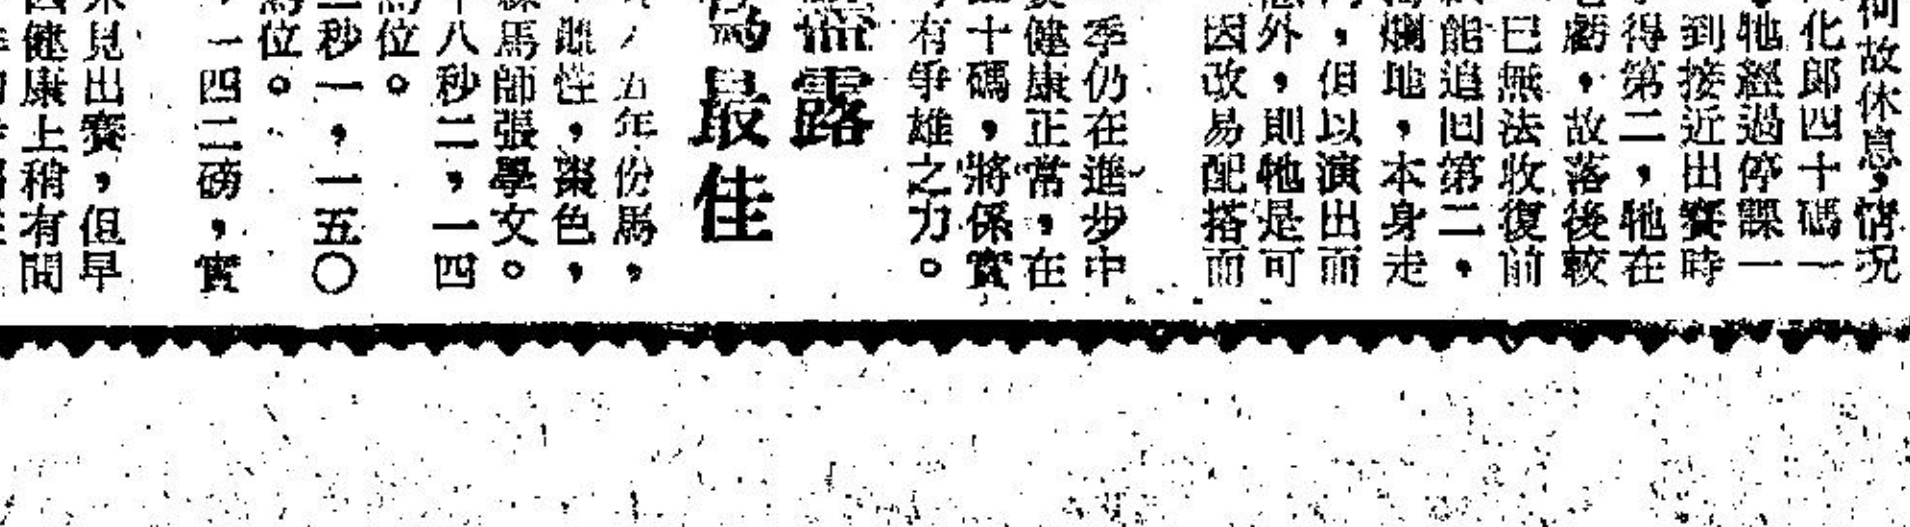 何故休息，情況
化郎四十碼一
牠經過停課一
到接近出賽時
得第二，牠在
虧，故落後較
已無法收復前
能追回第二，
爛地，本身走
，但以演出而
外，則牠是可
因改易配搭而
季仍在進步中
健康正常，在
十碼，將係實
有爭雄之力。
露
最佳
五年份馬，
雌性，棗色，
馬師張學文。
八秒二，一四
馬位。
二秒一，一五〇
馬位。
，一四二磅，實
見出賽，但早
健康上稍有間